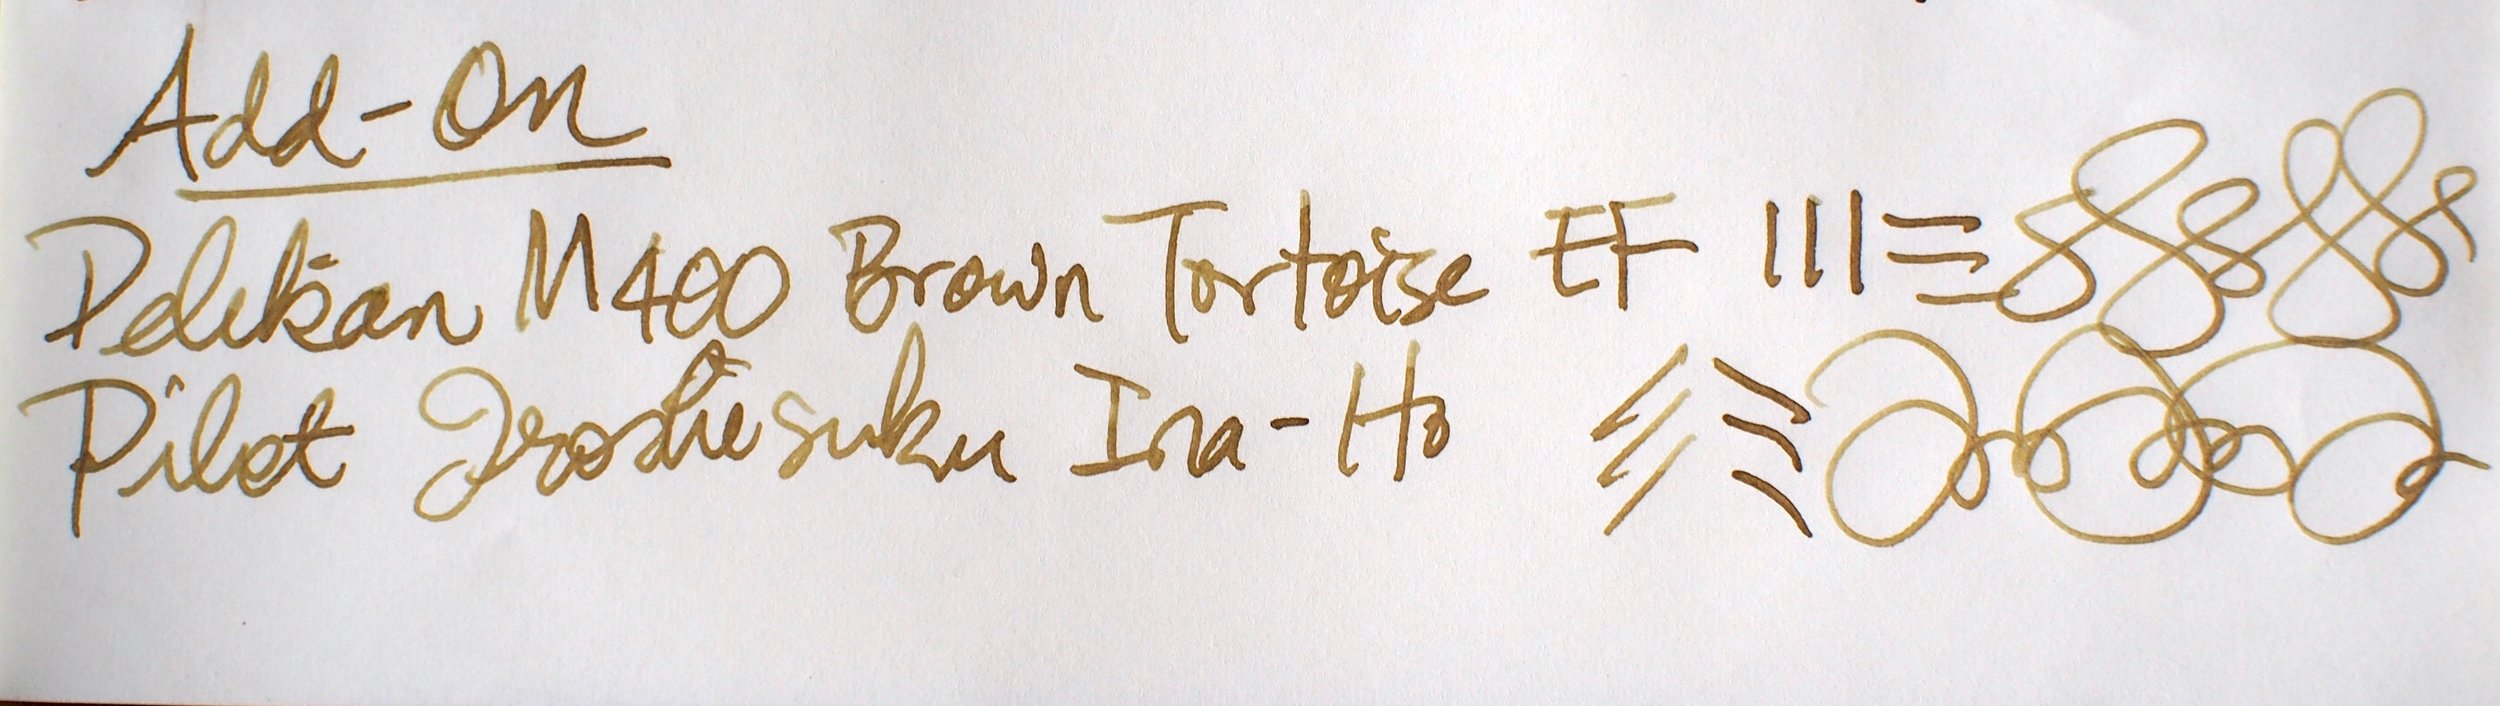 Add-On
Pelikan M400 Brown Tortoise EF
Pilot Iroshizuku Ina-Ho